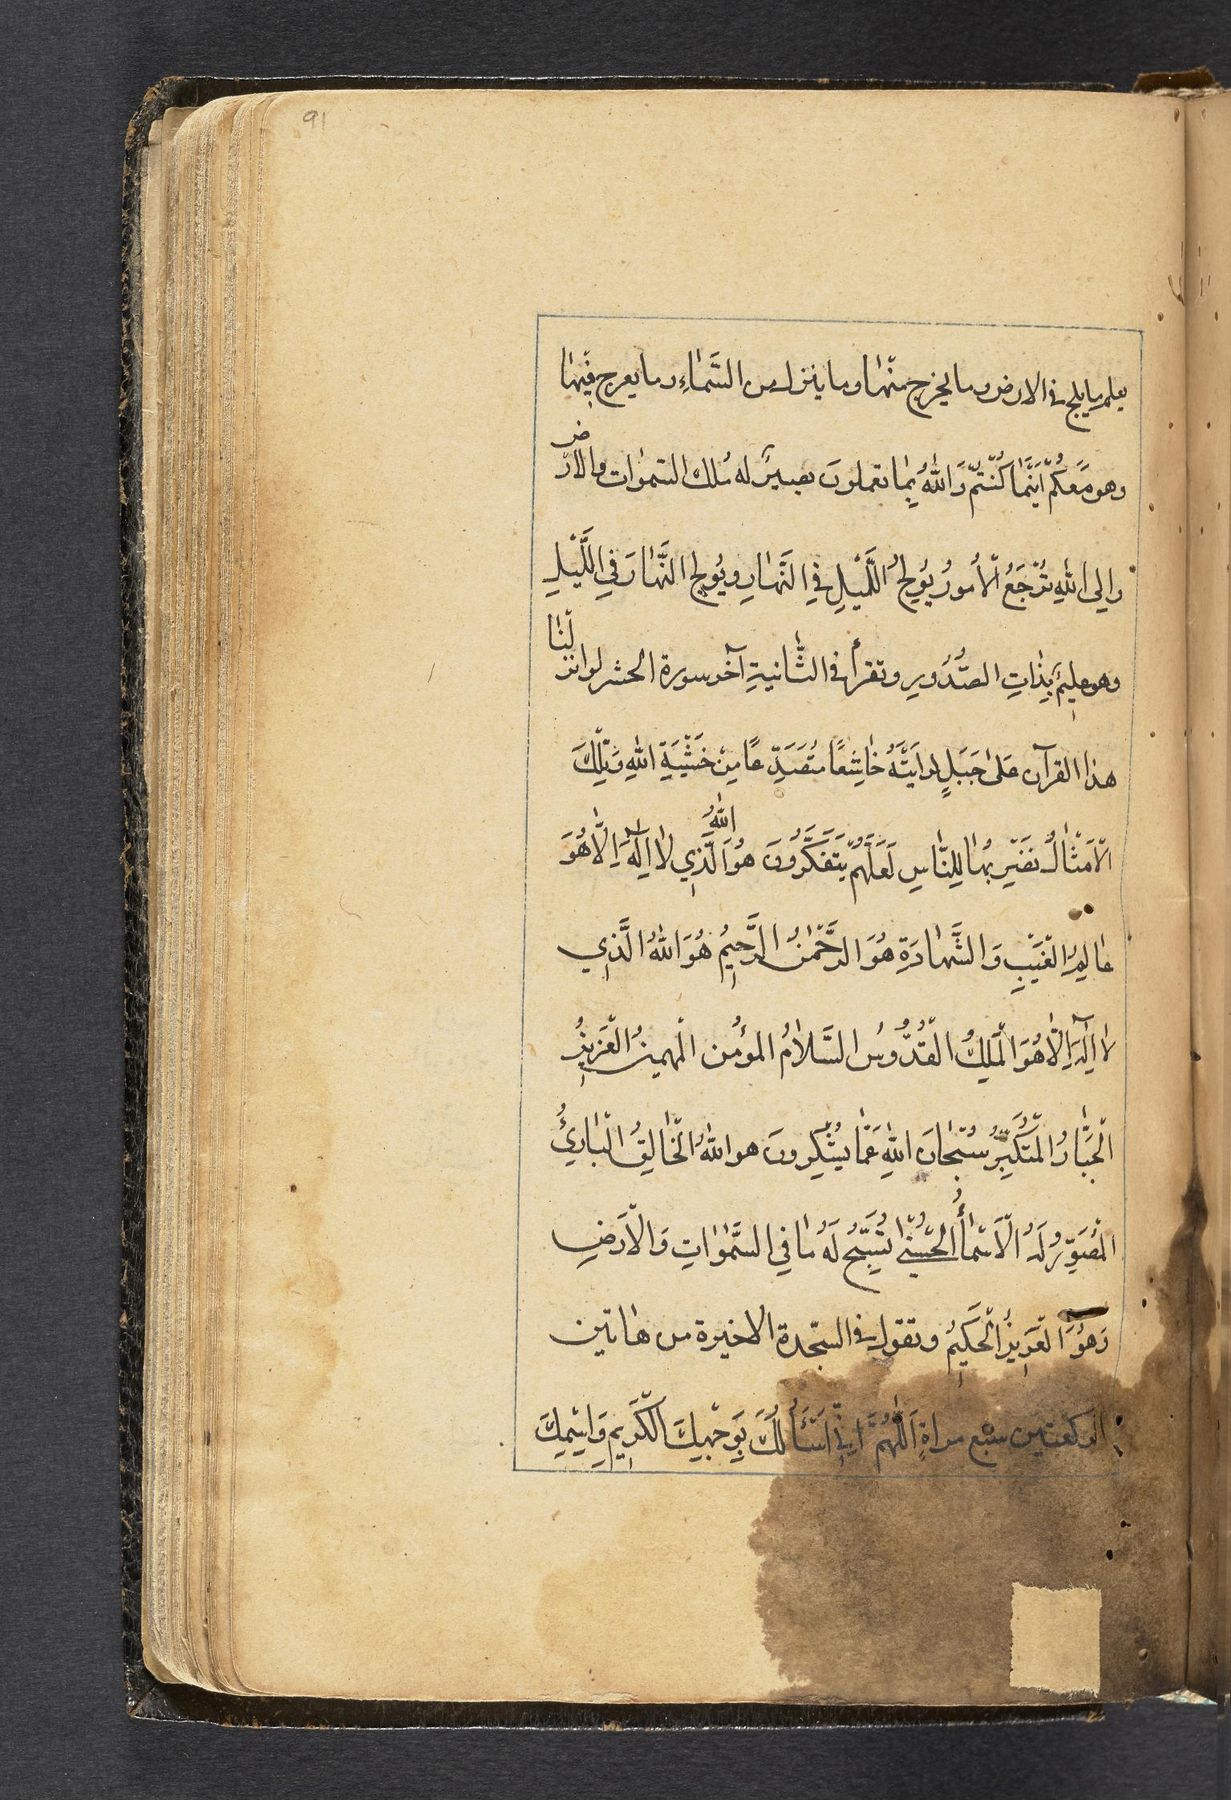 91
يعلم ما يلج في الارض وما يخرج منْهَا وما ينزل من السَّمَاءِ وما يعرج فِيْهَا
وهو مَعَكُمْ اَيْنَمَا كُنْتُمْ وَاللّٰهُ بِمَا تعملونَ بصيرٌ له مُلك السّمٰوات والارض
والى اللّٰهِ تُرْجَعُ الْاُمورُ يُولِجُ الَّليْلِ فِي النَّهَارِ ويُولِج النَّهَارَ فِي اللَّيْلِ
وهو عليمٌ بِذَاتِ الصُّدُورِ وتقرأ في الثَّانيةِ آخر سورة الحشر لو انزلْنَا
هذا القرآن عَلىٰ جَبَلٍ لرايَتَهُ خَاشِعًا مُتَصَدِّعًا مِنْ خَشْيَةِ اللهِ وَتِلْكَ
الْاَمْثَالُ نَضْرِبُهَا لِلنَّاسِ لَعَلَّهُمْ يَتَفَكَّرُونَ هُوَ اللّٰهُ الَّذِي لَا اِلٰهَ اِلَّا هُوَ
عَالِمُ الْغَيْبِ وَالشَّهَادَةِ هُوَ الرَّحْمٰنُ الرَّحِيمُ هُوَ اللّٰهُ الَّذِي
لَا اِلٰهَ اِلَّا هُوَ الْمَلِكُ الْقُدُّوسُ السَّلَامُ المؤُمن الْمهيمنُ الْعَزِيزُ
الْجَبَّارُ الْمُتَكَبِّرُ سُبْحَانَ اللّٰهِ عَمَّا يُشْرِكونَ هو اللّٰهُ الْخَالِقُ الْبَارِئُ
الْمُصَوِّرُ لَهُ الْاَسْمَأُ الْحُسْنىٰ يُسَبِّحُ لَهُ مَا فِي السَّمٰوَاتِ وَالْاَرْضِ
وَهُوَ الْعَزِيزُ الْحَكِيمُ وتقول في السجّدة الاخيرة من هاتين
الركعتين سَبْع مراةٍ اَللّٰهُمَّ اِنِّي اَسْئَاُلُكَ بَوَجْهِكَ الْكَرِيمِ وَاِسْمِكَ